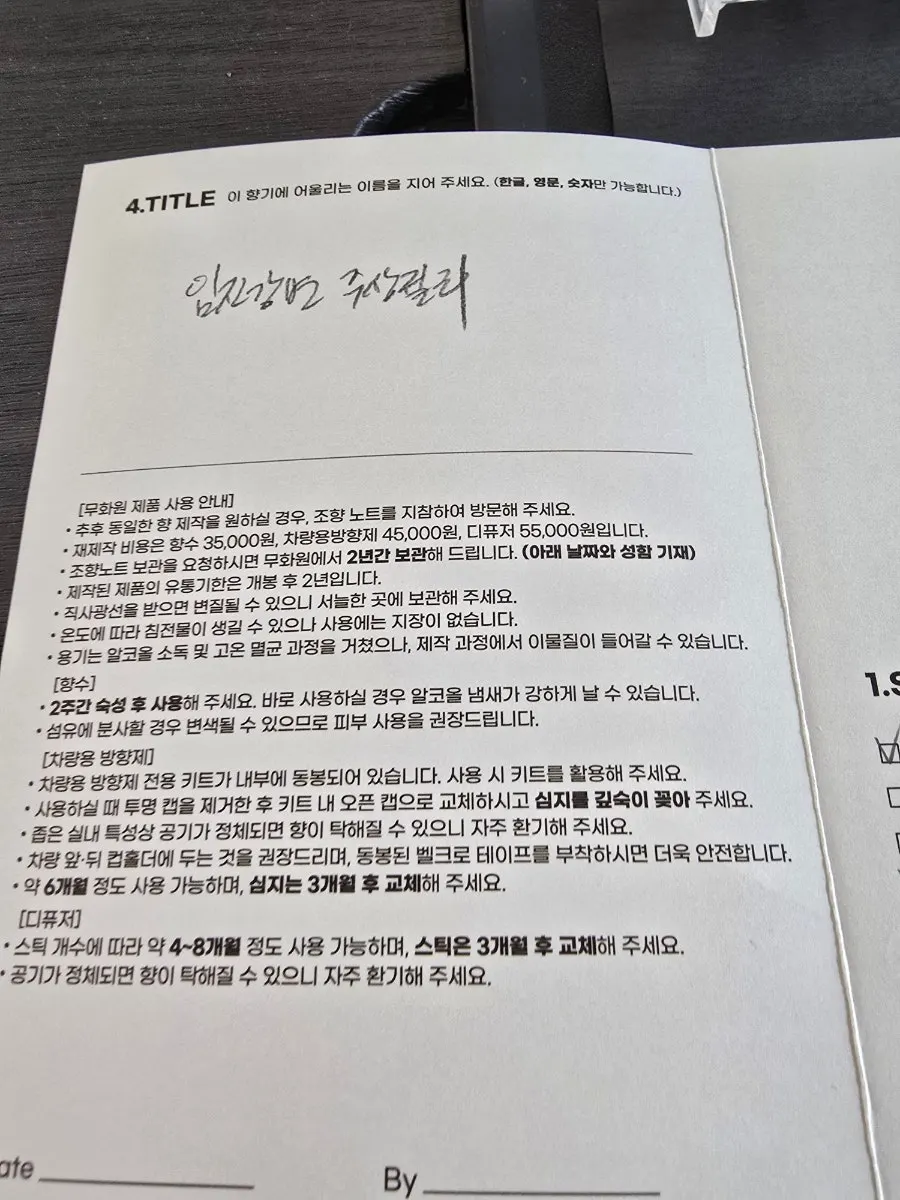 4.TITLE 이 향기에 어울리는 이름을 지어 주세요. (한글, 영문, 숫자만 가능합니다.)
임진강변 주상절리
[무화원 제품 사용 안내]
• 추후 동일한 향 제작을 원하실 경우, 조향 노트를 지참하여 방문해 주세요.
• 재제작 비용은 향수 35,000원, 차량용방향제 45,000원, 디퓨저 55,000원입니다.
• 조향노트 보관을 요청하시면 무화원에서 2년간 보관해 드립니다. (아래 날짜와 성함 기재)
• 제작된 제품의 유통기한은 개봉 후 2년입니다.
• 직사광선을 받으면 변질될 수 있으니 서늘한 곳에 보관해 주세요.
• 온도에 따라 침전물이 생길 수 있으나 사용에는 지장이 없습니다.
• 용기는 알코올 소독 및 고온 멸균 과정을 거쳤으나, 제작 과정에서 이물질이 들어갈 수 있습니다.
[향수]
• 2주간 숙성 후 사용해 주세요. 바로 사용하실 경우 알코올 냄새가 강하게 날 수 있습니다.
• 섬유에 분사할 경우 변색될 수 있으므로 피부 사용을 권장드립니다.
[차량용 방향제]
• 차량용 방향제 전용 키트가 내부에 동봉되어 있습니다. 사용 시 키트를 활용해 주세요.
• 사용하실 때 투명 캡을 제거한 후 키트 내 오픈 캡으로 교체하시고 심지를 깊숙이 꽂아 주세요.
• 좁은 실내 특성상 공기가 정체되면 향이 탁해질 수 있으니 자주 환기해 주세요.
• 차량 앞·뒤 컵홀더에 두는 것을 권장드리며, 동봉된 벨크로 테이프를 부착하시면 더욱 안전합니다.
• 약 6개월 정도 사용 가능하며, 심지는 3개월 후 교체해 주세요.
[디퓨저]
• 스틱 개수에 따라 약 4~8개월 정도 사용 가능하며, 스틱은 3개월 후 교체해 주세요.
• 공기가 정체되면 향이 탁해질 수 있으니 자주 환기해 주세요.
ate By
1.S